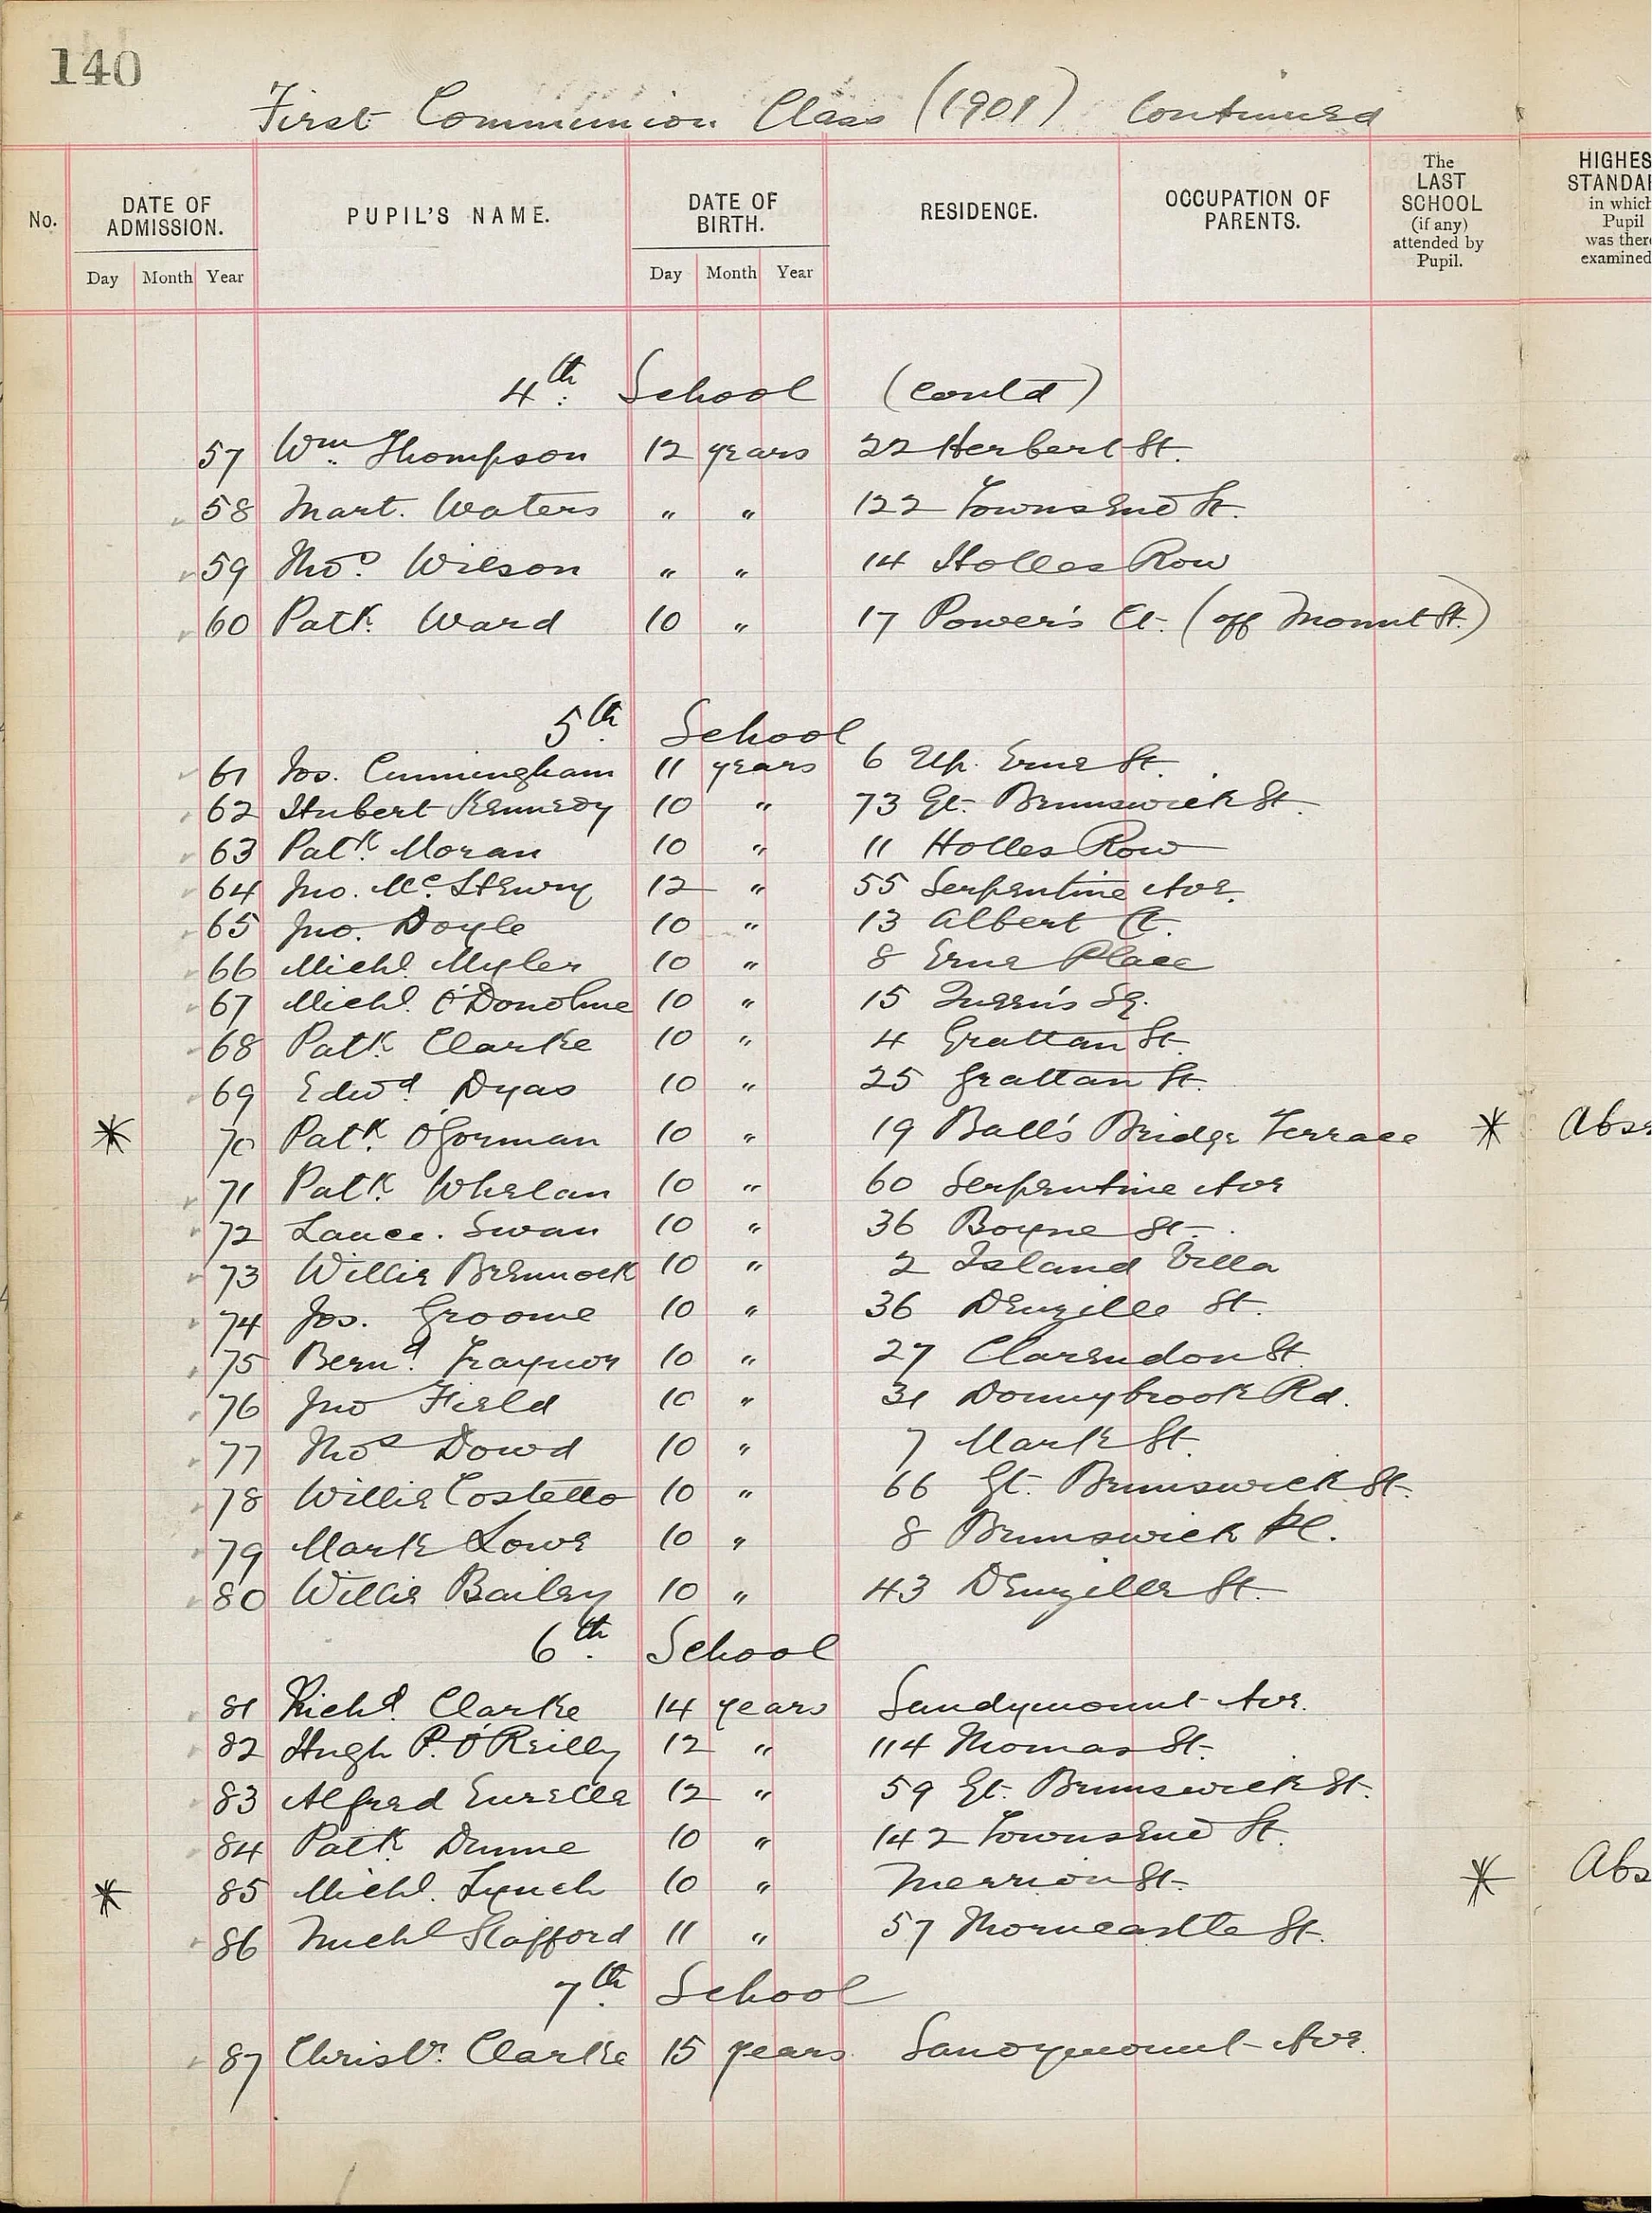 140
First Communion Class (1901) Continued
No. DATE OF ADMISSION. PUPIL'S NAME. DATE OF BIRTH. RESIDENCE. OCCUPATION OF PARENTS. The LAST SCHOOL (if any) attended by Pupil. HIGHES STANDAR in which Pupil was there examined
Day Month Year Day Month Year
4th School (contd)
57 Wm Thompson 12 years 22 Herbert St.
58 Mart. Waters " " 122 Townsend St.
59 Thos. Wilson " " 14 Holles Row
60 Patk. Ward 10 " 17 Power's Ct. (off Mount St.)
5th School
61 Jos. Cunningham 11 years 6 Up. Erne St.
62 Hubert Kennedy 10 " 73 Gt. Brunswick St.
63 Patk. Moran 10 " 11 Holles Row
64 Jno. Mc. Henry 12 " 55 Serpentine Ave.
65 Jno. Doyle 10 " 13 Albert Ct.
66 Michl. Myler 10 " 8 Erne Place
67 Michl. O'Donohue 10 " 15 Queen's Sq.
68 Patk. Clarke 10 " 4 Grattan St.
69 Edwd. Dyas 10 " 25 Grattan St.
* 70 Patk. O'Gorman 10 " 19 Ball's Bridge Terrace * Abse
71 Patk. Whelan 10 " 60 Serpentine Ave
72 Lauce. Swan 10 " 36 Boyne St.
73 Willie Brennock 10 " 2 Island Villa
74 Jos. Groome 10 " 36 Denzille St.
75 Bernd. Traynor 10 " 27 Clarendon St.
76 Jno Field 10 " 31 Donnybrook Rd.
77 Thos Dowd 10 " 7 Mark St.
78 Willie Costello 10 " 66 Gt. Brunswick St.
79 Mark Lowe 10 " 8 Brunswick Pl.
80 Willie Bailey 10 " 43 Denzille St.
6th School
81 Richd. Clarke 14 years Sandymount Ave.
82 Hugh P. O'Reilly 12 " 114 Thomas St.
83 Alfred 12 " 59 Gt. Brunswick St.
84 Patk Dunne 10 " 142 Townsend St.
* 85 Michl. Lynch 10 " Merrion St. * Abs
86 Michl Stafford 11 " 57 Thorncastle St.
7th School
87 Christr. Clarke 15 years Sandymount Ave.